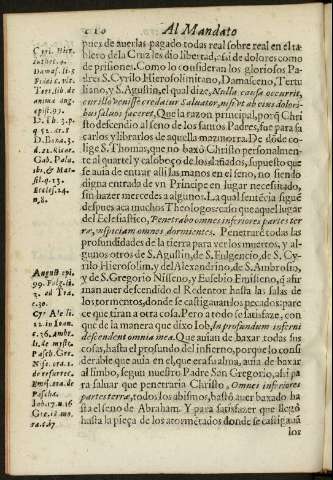 210 Al Mandato
pues de auerlas pagado todas real sobre real en el ta-
blero de la Cruz les dio libertad, assi de dolores como
de prisiones. Como lo consideran los gloriosos Pa-
dres S. Cyrilo Hierosolimitano, Damasceno, Tertu-
liano, y S. Agustin, el qual dize, Nulla causa occurrit,
cur illo venisse credatur Saluator, nisi vt ab eius dolori-
bus saluos faceret. Que la razon principal, porq̃ Christo
descendio al seno de los santos Padres, fue para sa
carlos y librarlos de aquella mazmorra. De dõde co-
lige S. Thomas, que no baxò Christo personalmen-
te al quartel y calaboço de los dañados, supuesto que
se auia de entrar alli las manos en el seno, no siendo
digna entrada de vn Principe en lugar necessitado,
sin hazer mercedes a algunos. La qual sentẽcia siguẽ
despues aca muchos Theologos: caso que aquel lugar
del Eclesiastico, Penetrabo omnes inferiores partes ter
ræ, inspiciam omnes dormientes. Penetrare todas las
profundidades de la tierra para ver los muertos, y al-
gunos otros de S. Agustin, de S. Fulgencio, de S. Cy-
rilo Hierosolim. y del Alexandrino, de S. Ambrosio,
y de S. Gregorio Nisseno, y Eusebio Emisseno, q̃ afir
man auer descendido el Redentor hasta las salas de
los tormentos, donde se castigauan los pecados: pare
ce que tiran a otra cosa. Pero a todo se satisfaze, con
que de la manera que dixo Iob, In profundum inferni
descendent omnia mea. Que auian de baxar todas sus
cosas, hasta el profundo del infierno, porque lo consi
derable que auia en el, que era su alma, auia de baxar
al limbo, segun nuestro Padre San Gregorio, assi pa
ra saluar que penetraria Christo, Omnes inferiores
partes terræ, todos los abismos, bastò auer baxado ha
sta el seno de Abraham. Y para satisfazer que llegò
hasta la pieça de los atormẽtados donde se castigauã
los
Cyri. Hier.
Damas. li. 3
Fidei c. vlt
Tert. lib. de
anima
August. epi.
99. Fulg. li.
3. ad Tra.
c. 30.
22. in Ioan.
c. 36. Ambr.
li. de myste.
Pasch. Gre.
Nisse. ora. 1.
de resurrec.
Emis. ora. de
Pascha.
Iob. 17. n. 16
Gre. 13. mo.